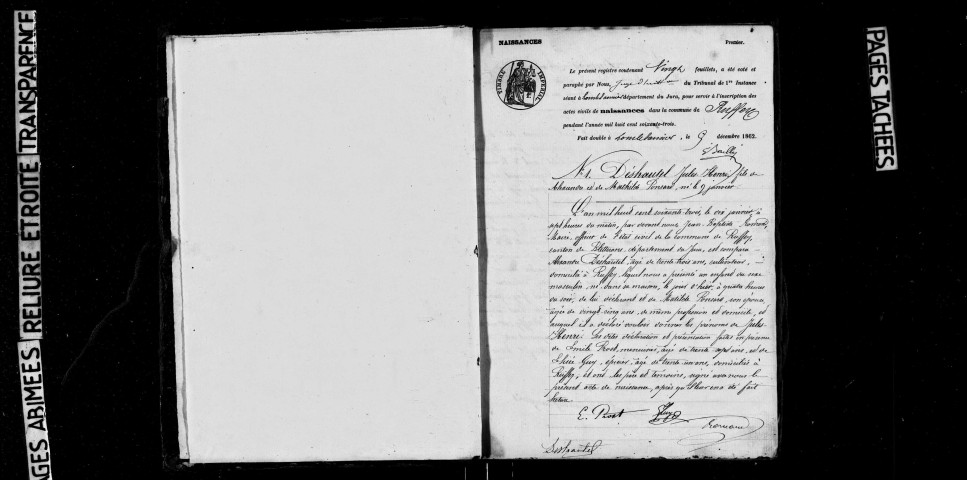 PAGES ABIMEES
RELIURE ETROITE
TRANSPARENCE
PAGES TACHEES
NAISSANCES
Premier.
TIMBRE IMPERIAL
Le présent registre contenant Vingt feuillets, a été coté et
paraphé par Nous, Juge du Tribunal de 1re Instance
séant à Lons-le-Saunier département du Jura, pour servir à l'inscription des
actes civils de naissances dans la commune de Ruffey
pendant l'année mil huit cent soixante-trois.
Fait double à Lons-le-Saunier, le 9 décembre 1862.
Bailly
N. 1. Déshautel Jules Henri, fils de
et de Mathilde Ponsard, né le 9 janvier
L'an mil huit cent soixante trois, le dix janvier, à
sept heures du matin, par devant nous, Jean Baptiste
Maire, officier de l'état civil de la commune de Ruffey,
canton de Bletterans, département du Jura, est comparu
Déshautel, âgé de trente trois ans, cultivateur,
domicilié à Ruffey, lequel nous a présenté un enfant du sexe
masculin, né dans sa maison, le jour d'hier, à quatre heures
du soir, de lui déclarant et de Mathilde Ponsard, son épouse,
âgée de vingt cinq ans, de même profession et domicile, et
auquel il a déclaré vouloir donner les prénoms de Jules
Henri. Les dites déclaration et présentation faites en présence
de Emile Prost, menuisier, âgé de trente sept ans, et de
Guy, épicier, âgé de trente un ans, domiciliés à
Ruffey, et ont les père et témoins, signé avec nous le
présent acte de naissance, après qu'il leur en a été fait
lecture.
E. Prost Guy
Deshautel